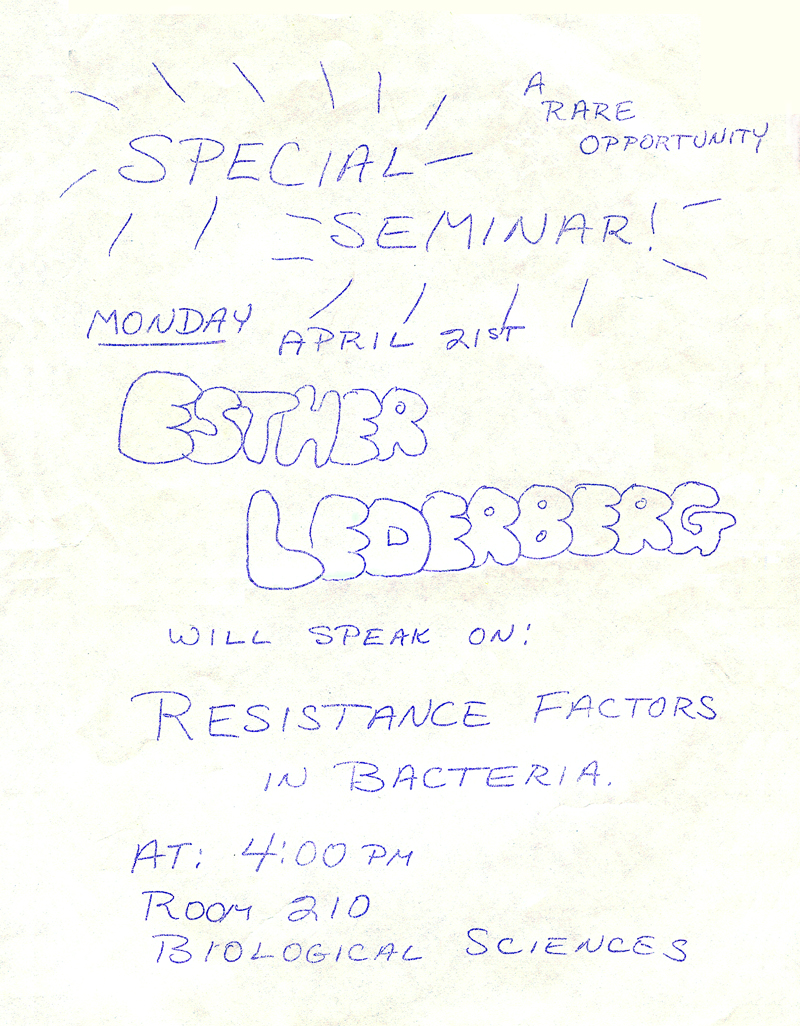 A
RARE
OPPORTUNITY
SPECIAL
SEMINAR!
MONDAY APRIL 21ST
ESTHER
LEDERBERG
WILL SPEAK ON:
RESISTANCE FACTORS
IN BACTERIA.
AT: 4:00 PM
ROOM 210
BIOLOGICAL SCIENCES